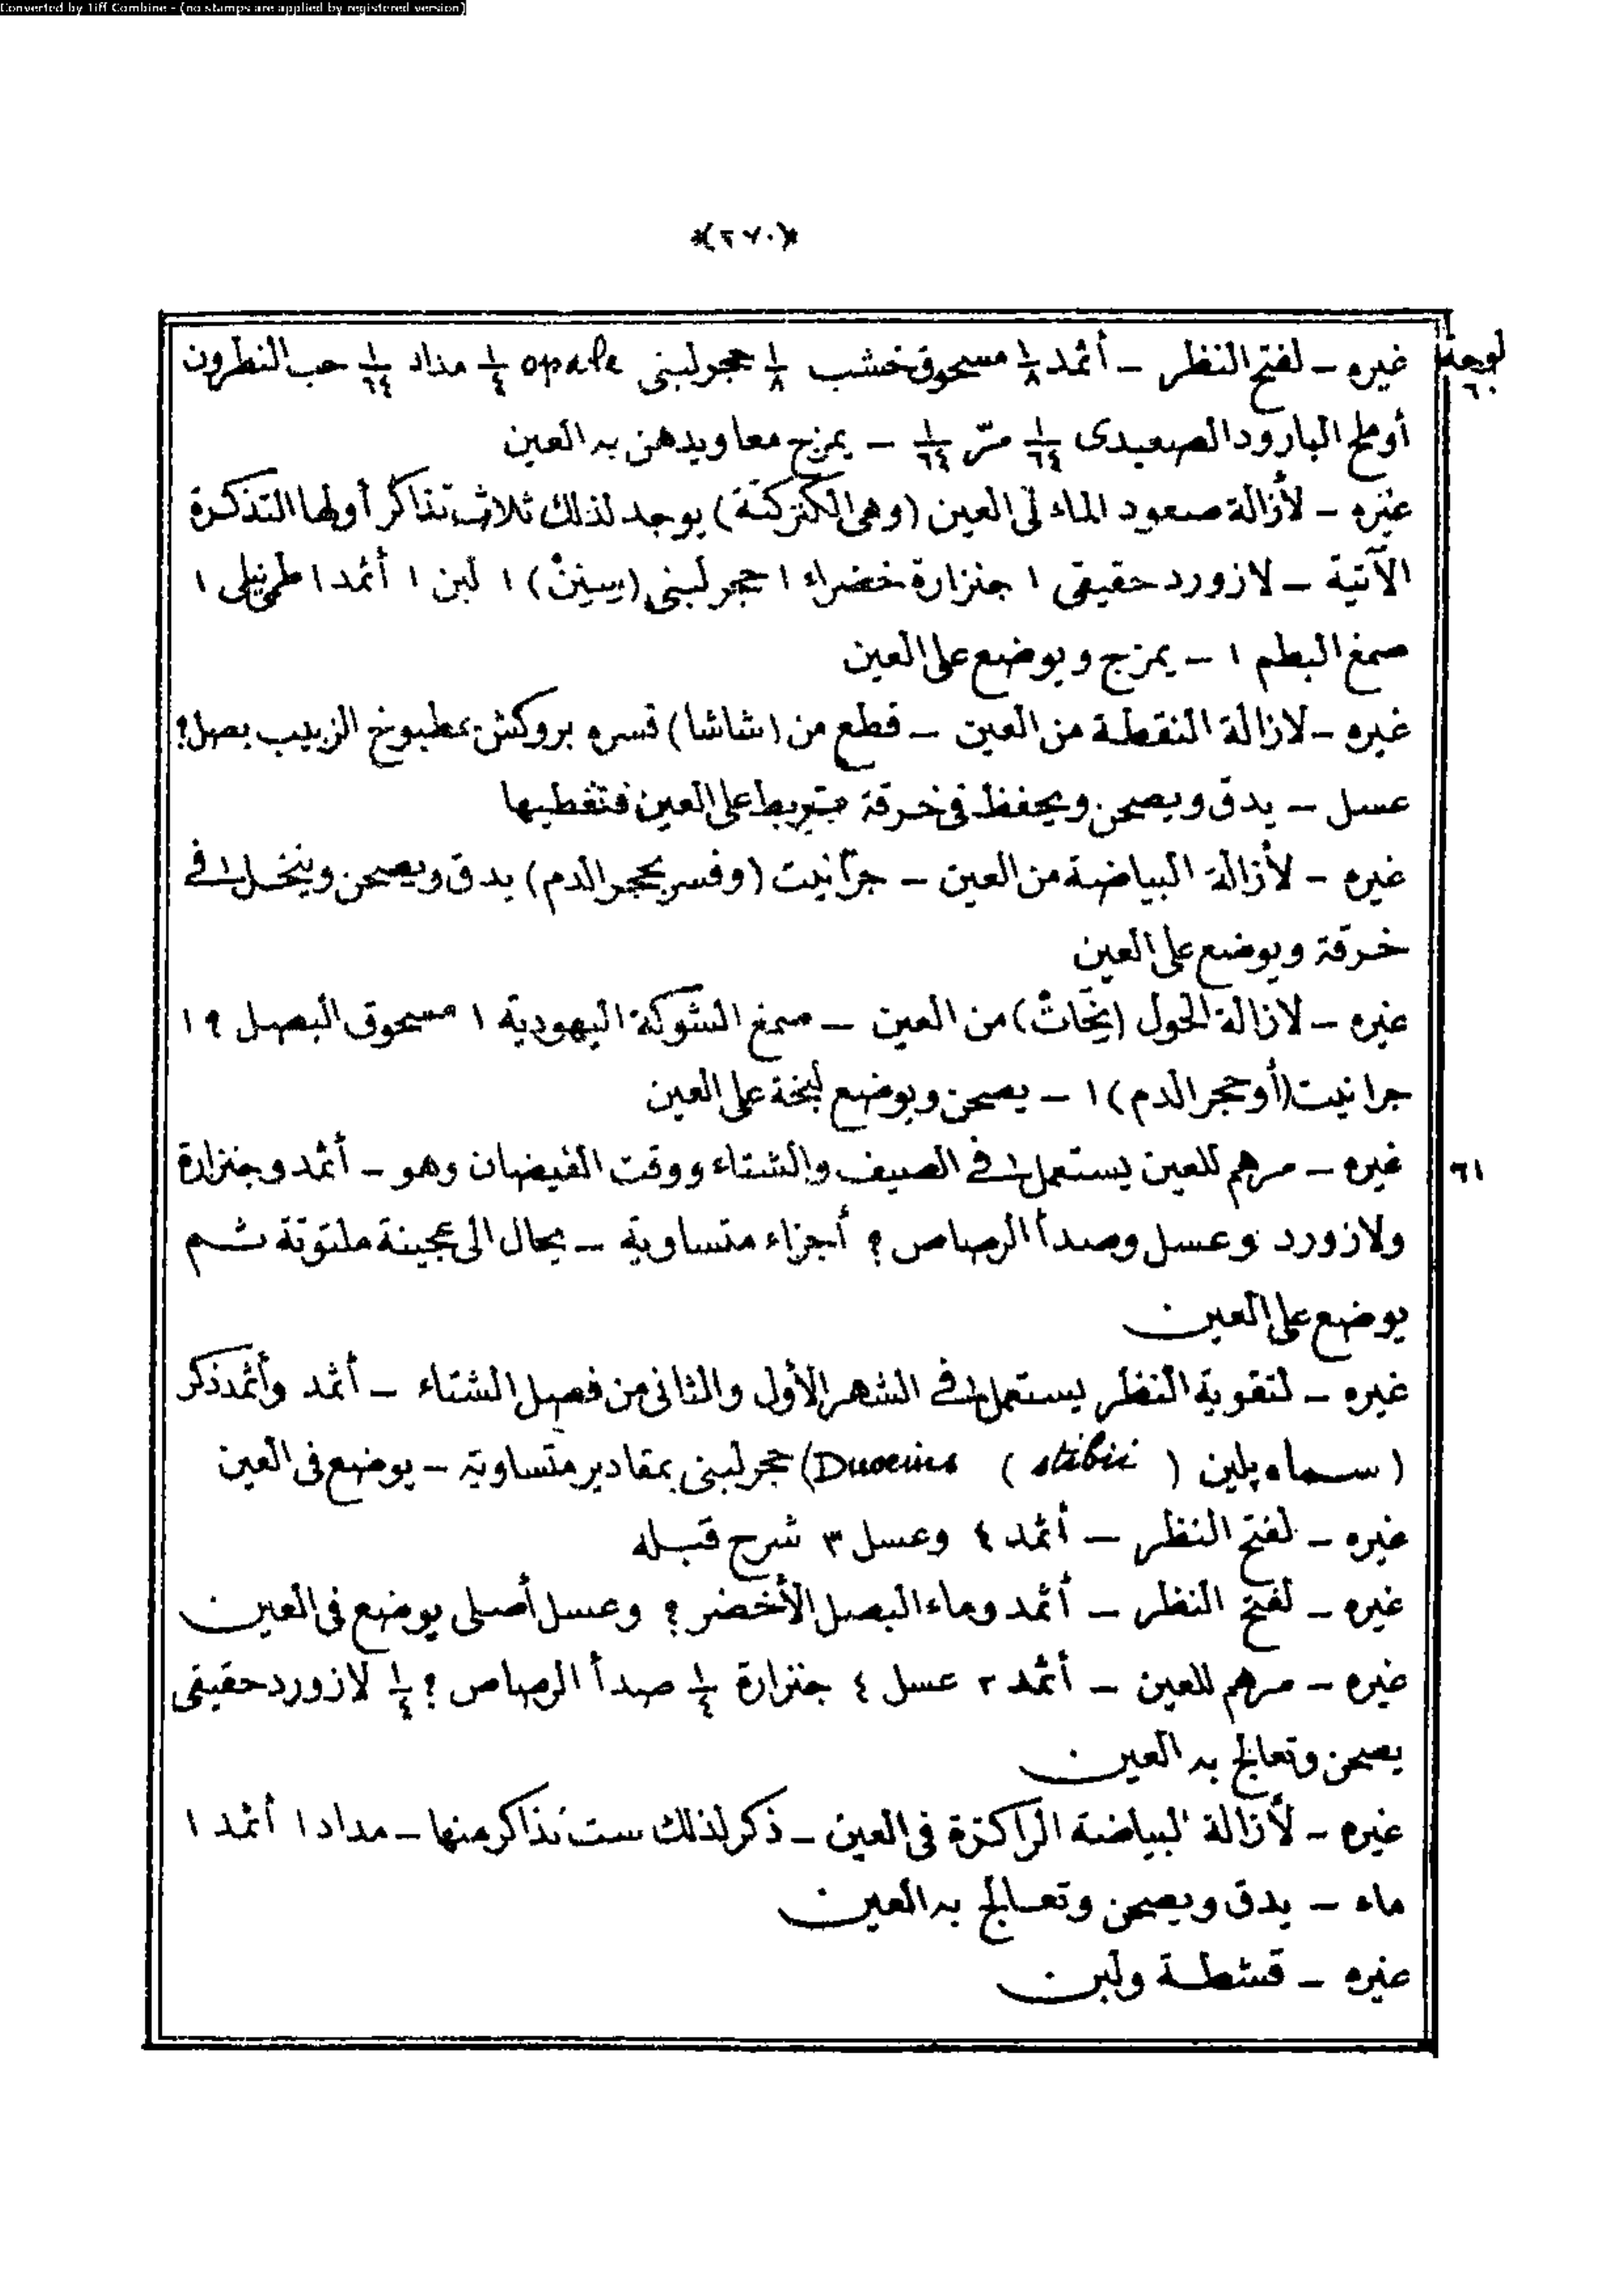 Converted by Tiff Combine - (no stamps are applied by registered version)
*(٢٧٠)*
لوحة ٦٠
غيره – لفتح النظر – أثمد ١/٨ مسحوق خشب ١/٨ حجر لبنى opale ١/٤ مداد ١/٦٤ حب النطرون
أو ملح البارود الصعيدى ١/٦٤ مرّ ١/٦٤ – يمزج معا ويدهن به العين
غيره – لأزالة صعود الماء فى العين (وهى الكتركتة) يوجد لذلك ثلاث تذاكر أولها التذكرة
الآتية – لازورد حقيقى ١ جنزارة خضراء ١ حجر لبنى ١ لبن ١ أثمد ١ طمى نيلى ١
صمغ البطم ١ – يمزج ويوضع على العين
غيره – لازالة النقطة من العين – قطع من (شاشا) فسره بروكش بمطبوخ الزبيب بصل؟
عسل – يدق ويصحن ويحفظ فى خرقة يربط على العين فتغطيها
غيره – لأزالة البياضة من العين – جرانيت (وفسر بحجر الدم) يدق ويصحن وينخل فى
خرقة ويوضع على العين
غيره – لازالة الحول من العين – صمغ الشوكة اليهودية ١ مسحوق البصل ؟ ١
جرانيت (أو حجر الدم) ١ – يصحن ويوضع لبخة على العين
٦١
غيره – مرهم للعين يستعمل فى الصيف والشتاء ووقت الفيضان وهو – أثمد وجنزارة
ولازورد وعسل وصدأ الرصاص؟ أجزاء متساوية – يحال الى عجينة ملتوتة ثم
يوضع على العين
غيره – لتقوية النظر يستعمل فى الشهر الأول والثانى من فصل الشتاء – أثمد وأثمد ذكر
(سماه پلين ( stibii ) حجر لبنى بمقادير متساوية – يوضع فى العين
غيره – لفتح النظر – أثمد ٤ وعسل ٣ شرح قبله
غيره – لفتح النظر – أثمد وماء البصل الأخضر؟ وعسل أصلى يوضع فى العين
غيره – مرهم للعين – أثمد ٢ عسل ٤ جنزارة ١/٤ صدأ الرصاص؟ ١/٤ لازورد حقيقى
يصحن وتعالج به العين
غيره – لأزالة البياضة الراكزة فى العين – ذكر لذلك ست تذاكر منها – مداد ١ أثمد ١
ماء – يدق ويصحن وتعالج به العين
غيره – قشطة ولبن